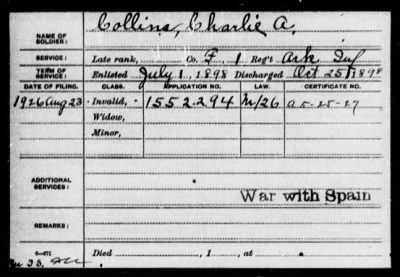 Collins, Charlie A.
NAME OF SOLDIER:
SERVICE: Late rank, Co. F, 1 Reg't Ark Inf
TERM OF SERVICE: Enlisted July 1, 1898 Discharged Oct 25, 1898
DATE OF FILING. CLASS. APPLICATION NO. LAW. CERTIFICATE NO.
1926 Aug 23 Invalid, 1552294 M/26 a 5-25-27
Widow,
Minor,
ADDITIONAL SERVICES:
War with Spain
REMARKS:
Died , 1 , at